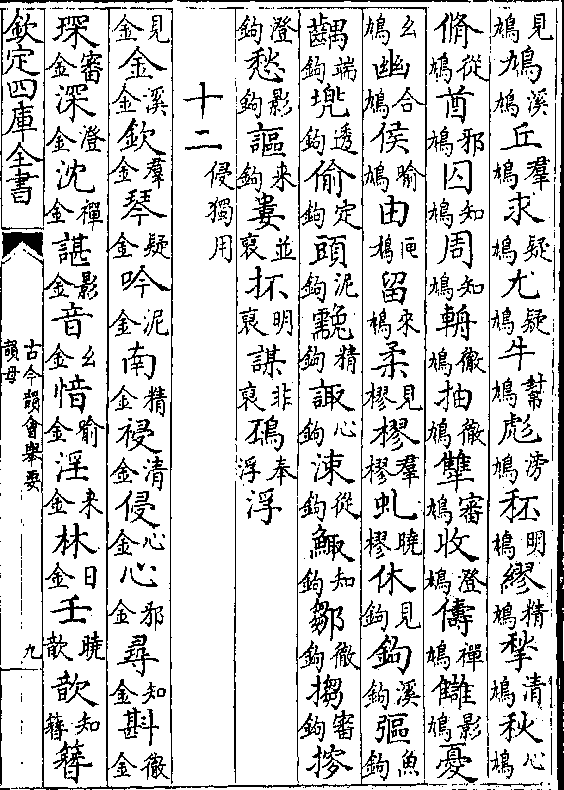 見鳩鳩溪鳩丘羣鳩求疑鳩尤疑鳩牛幫鳩彪滂鳩秠明樛繆精鳩揫清鳩秋心鳩
脩從鳩酋邪鳩囚知鳩周知鳩輈徹鳩抽徹鳩犨審鳩收澄鳩儔禪鳩讎影鳩憂
幺鳩幽合鳩侯喻鳩由匣鳩留來鳩柔見樛樛羣樛虬曉樛休見鉤鉤溪鉤彄魚鉤
齵端鉤兜透鉤偷定鉤頭泥鉤羺精鉤諏心鉤涑從鉤鯫知鉤鄒徹鉤搊審鉤
澄鉤愁影鉤謳來鉤婁並裒抔明裒謀非裒奉浮浮
十二侵獨用
見金金溪金欽羣金琴疑金吟泥金南精金祲清金侵心金心邪金尋知金斟徹金
琛審金深澄金沈禪金諶影金音幺金愔喻金淫來金林日金壬曉歆歆知簪簪
欽定四庫全書
古今韻會舉要
韻母
九